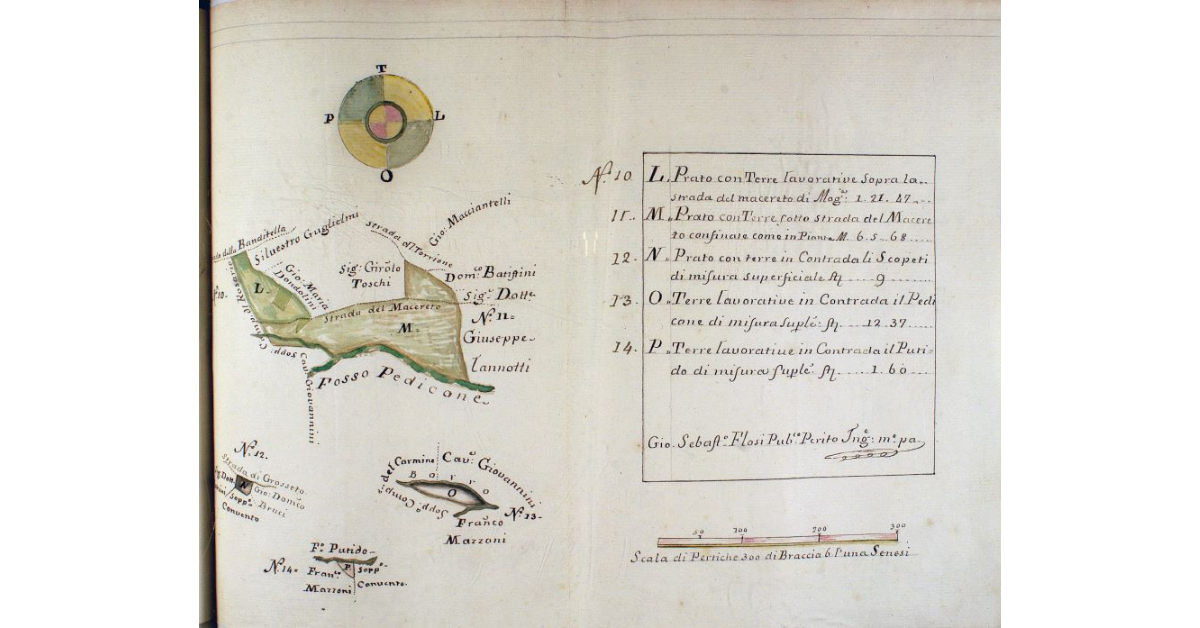 T
P L
O
Nº. 10 L. Prato con Terre lavorative sopra la..
strada del macereto di Mogª: 1. 21. 47...
11.. M. Prato con Terre sotto strada del Macere
to confinate come in Pianta M. 6. 5. 68......
12. N. Prato con terre in Contrada li Scopeti
di misura superficiale St ..... 9 ......
13. O. Terre lavorative in Contrada il Pedi
cone di misura suplê: St. .... 12. 37.....
14. P. Terre lavorative in Contrada il Puti-
do di misura suplê: St ..... 1. 60 ....
Gio. Sebastº Flosi Pubº Perito Ingº: mº pª
della Banditella
Silvestro Guglielmi
strada del Torrione
Gio: Macciantelli
Gio: Maria
Dondolini
Sig: Girólo
Toschi
Domºº Batistini
Sig: Dottº
Nº. 10.
L.
Strada del Macereto
M.
Nº. 11=
Giuseppe
Iannotti
Sopp:
Cavº: Giovannini
Fosso Pedicone
Nº. 12.
Strada di Grosseto
N
Gio: Domºº
Bruci
Sopp:
Convento
del Carmine
Cavº: Giovannini
Borro
O
Soppº Comp:
Nº. 13-
Franºº
Mazzoni
Fº. Putido
P
Soppº
Nº. 14=
Franºº
Mazzoni
Convento
50 100 200 300
Scala di Pertiche 300 di Braccia 6 l'una Senesi